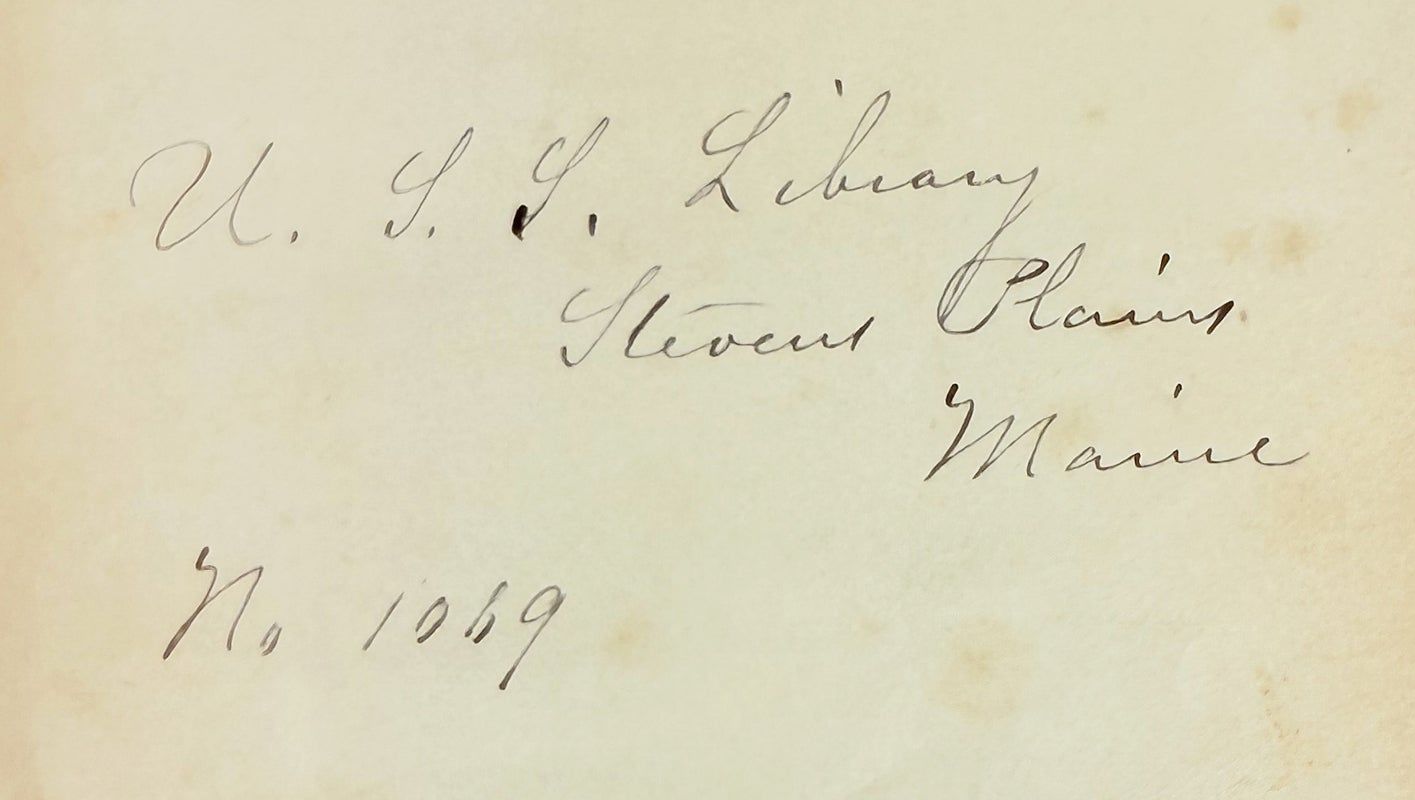 U. S. S. Library
Stevens Plains
Maine
No 1069